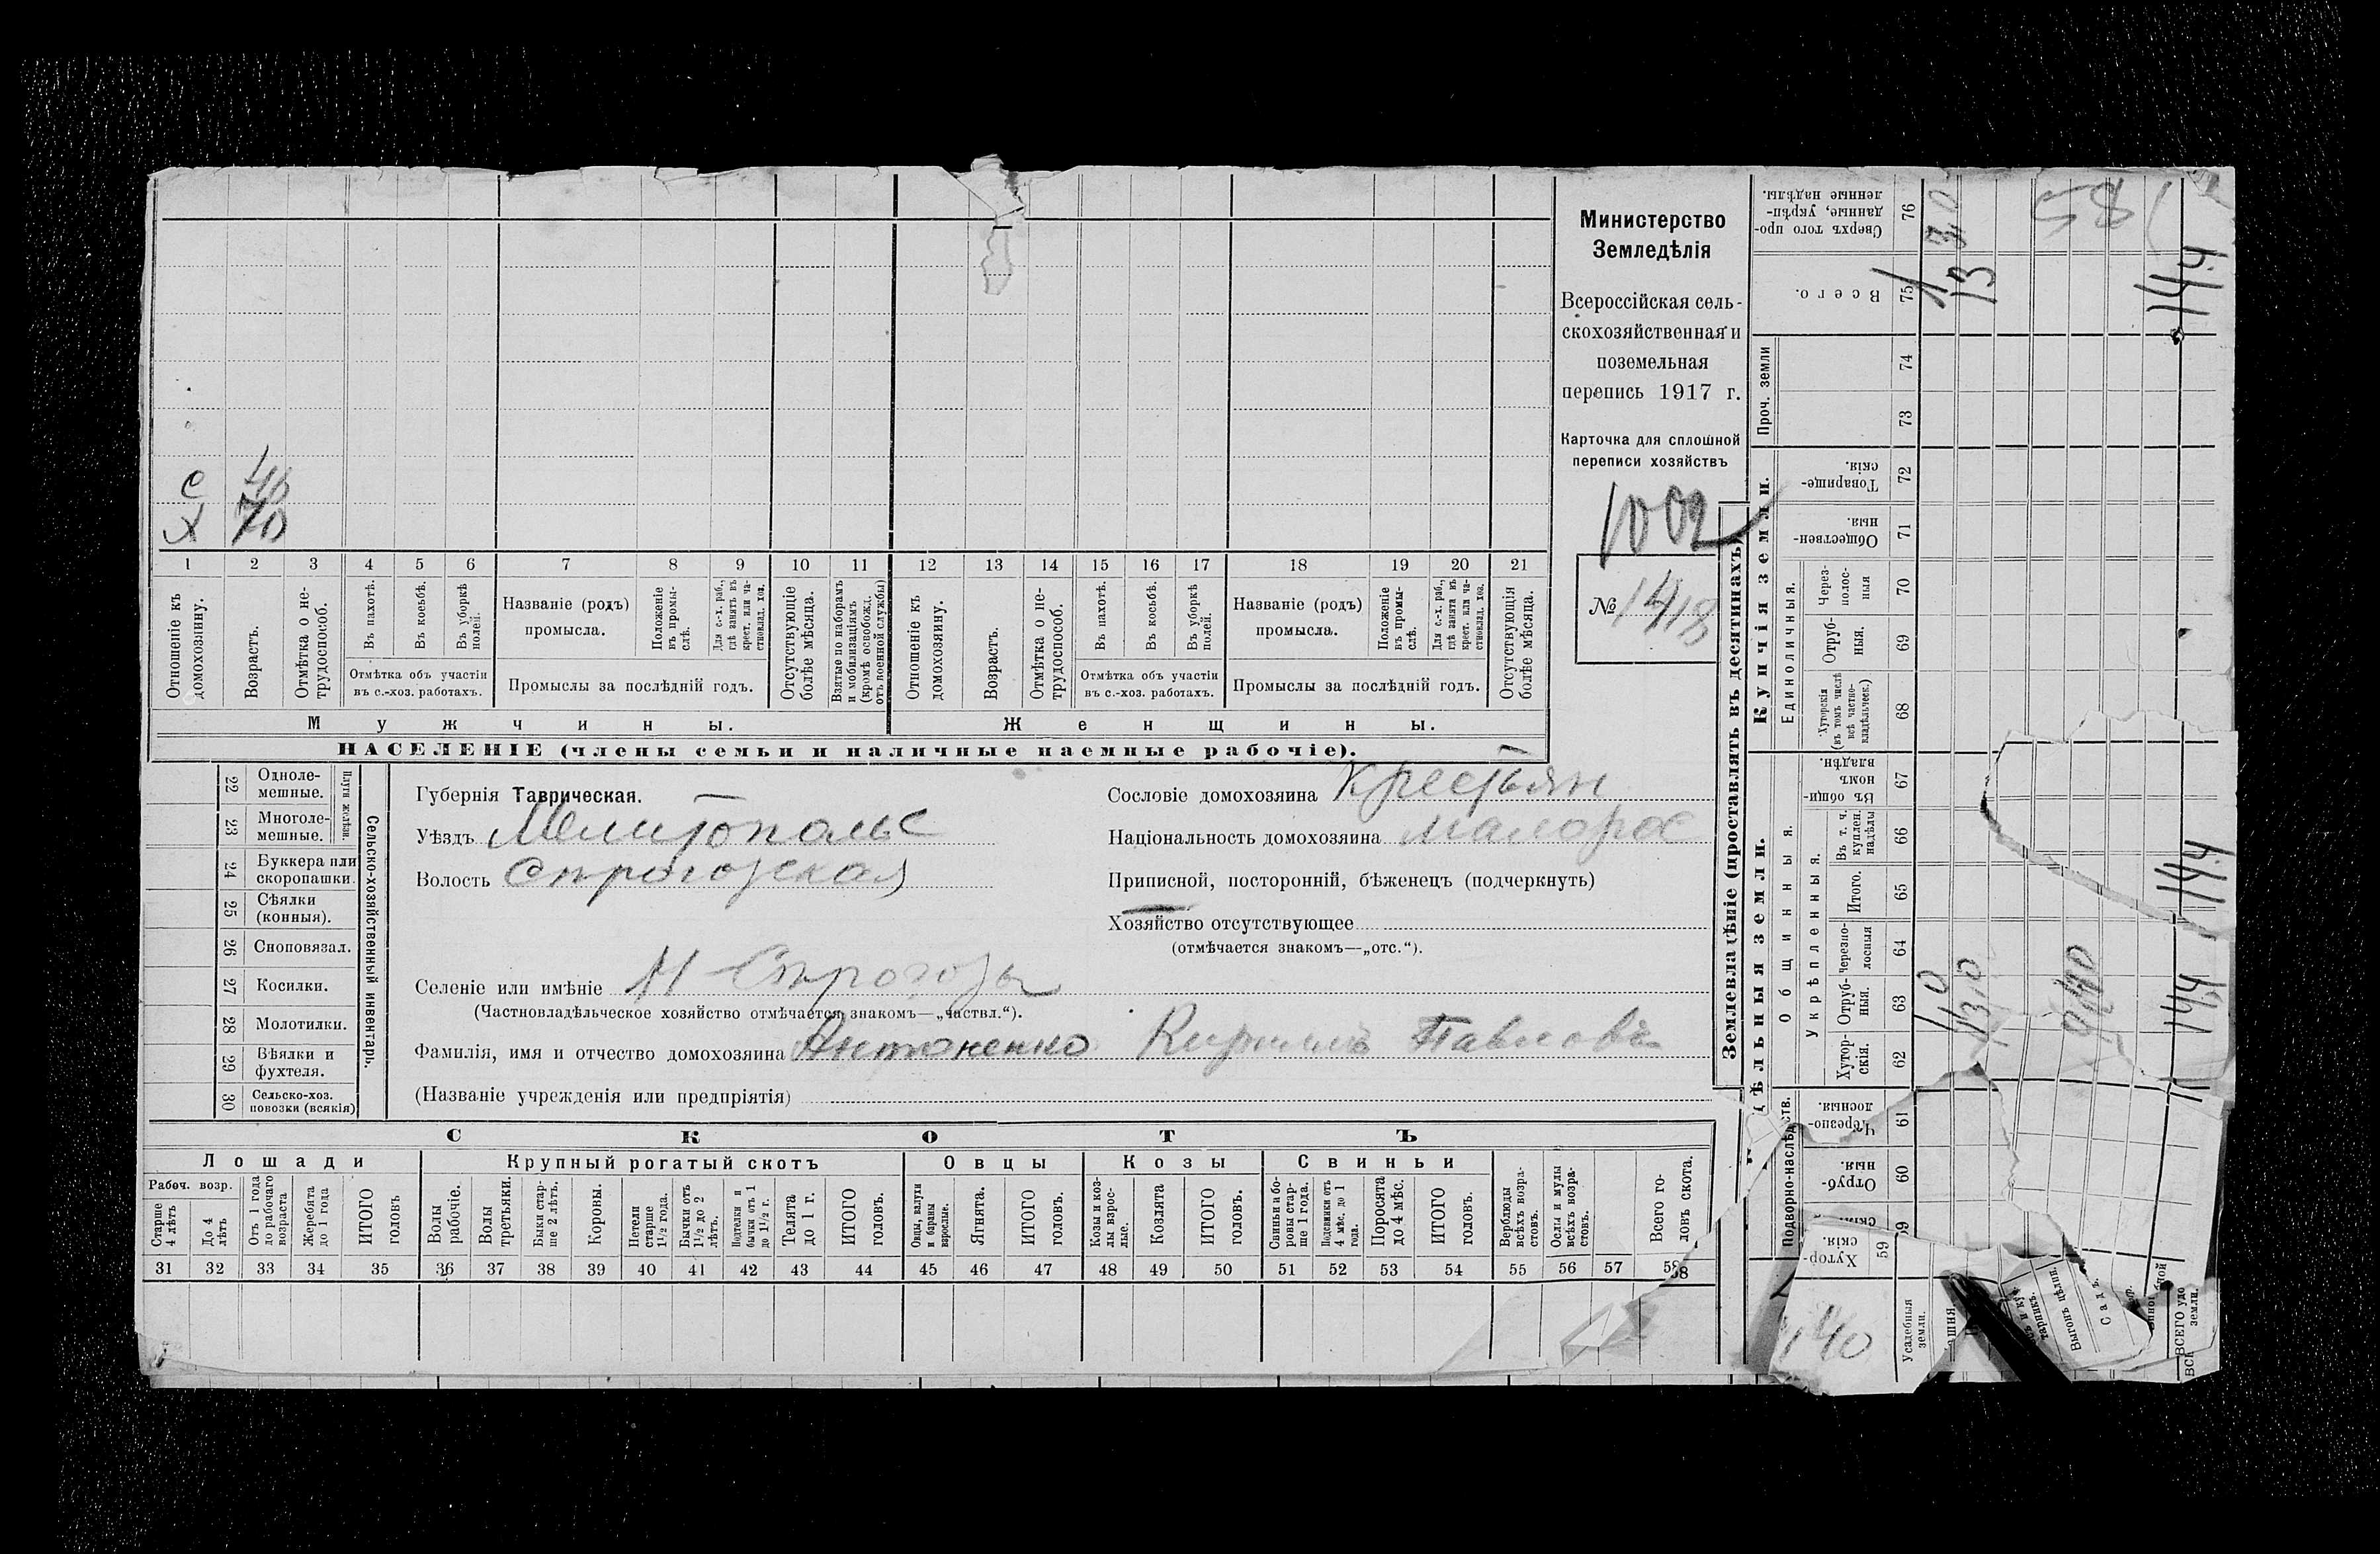 с 46
х 70
1 2 3 4 5 6 7 8 9 10 11 12 13 14 15 16 17 18 19 20 21
Отношеніе къ домохозяину.
Возрастъ.
Отмѣтка о не-трудоспособ.
Въ пахотѣ.
Въ косьбѣ.
Въ уборкѣ полей.
Отмѣтка объ участіи въ с.-хоз. работахъ.
Названіе (родъ) промысла.
Положеніе въ промы-слѣ.
Для с.-х. раб., гдѣ занятъ въ крест. или ча-стновлад. хоз.
Промыслы за послѣдній годъ.
Отсутствующіе болѣе мѣсяца.
Взятые по наборамъ и мобилизаціямъ (кромѣ освобожд. отъ военной службы)
Отношеніе къ домохозяину.
Возрастъ.
Отмѣтка о не-трудоспособ.
Въ пахотѣ.
Въ косьбѣ.
Въ уборкѣ полей.
Отмѣтка объ участіи въ с.-хоз. работахъ.
Названіе (родъ) промысла.
Положеніе въ промы-слѣ.
Для с.-х. раб., гдѣ занята въ крест. или ча-стновлад. хоз.
Промыслы за послѣдній годъ.
Отсутствующія болѣе мѣсяца.
Мужчины. Женщины.
НАСЕЛЕНІЕ (члены семьи и наличные наемные рабочіе).
Министерство
Земледѣлія
Всероссійская сель-
скохозяйственная и
поземельная
перепись 1917 г.
Карточка для сплошной
переписи хозяйствъ
1002
№ 1418
22 Одноле-мешные.
23 Многоле-мешные.
Плуги желѣзн.
24 Буккера или скоропашки.
25 Сѣялки (конныя).
26 Сноповязал.
27 Косилки.
28 Молотилки.
29 Вѣялки и фухтеля.
30 Сельско-хоз. повозки (всякія)
Сельско-хозяйственный инвентарь.
Губернія Таврическая.
Уѣздъ Мелитопольс
Волость Спрогозская
Сословіе домохозяина Крестьян
Національность домохозяина малорос
Приписной, посторонній, бѣженецъ (подчеркнуть)
Хозяйство отсутствующее
(отмѣчается знакомъ—„отс.“).
Селеніе или имѣніе Н Спрогозы
(Частновладѣльческое хозяйство отмѣчается знакомъ—„частвл.“).
Фамилія, имя и отчество домохозяина Антоненко Кириллъ Павловъ
(Названіе учрежденія или предпріятія)
СКОТЪ
Лошади Крупный рогатый скотъ Овцы Козы Свиньи
Рабоч. возр.
Старше 4 лѣтъ
До 4 лѣтъ
Отъ 1 года до рабочаго возраста
Жеребята до 1 года
ИТОГО головъ
Волы рабочіе.
Волы третьяки.
Быки стар-ше 2 лѣтъ.
Коровы.
Нетели старше 1½ года.
Бычки отъ 1½ до 2 лѣтъ.
Подтелки и бычки отъ 1 до 1½ г.
Телята до 1 г.
ИТОГО головъ.
Овцы, валухи и бараны взрослые.
Ягнята.
ИТОГО головъ.
Козы и коз-лы взрос-лые.
Козлята
ИТОГО головъ.
Свиньи и бо-ровы стар-ше 1 года.
Подсвинки отъ 4 мѣс. до 1 года.
Поросята до 4 мѣс.
ИТОГО головъ.
Верблюды всѣхъ возра-стовъ.
Ослы и мулы всѣхъ возра-стовъ.
Всего го-ловъ скота.
31 32 33 34 35 36 37 38 39 40 41 42 43 44 45 46 47 48 49 50 51 52 53 54 55 56 57 58
Землевладѣніе (проставлять въ десятинахъ)
Купчія земли.
Проч. земли
Единоличныя.
Общинныя.
Укрѣпленныя.
Подворно-наслѣдств.
Сверхъ того про-данные, укрѣп-ленные надѣлы. 76 30 58
Всего. 75 11 13 144
74
73
Товарище-скія. 72
Обществен-ныя. 71
Через-полос-ныя 70
Отруб-ныя. 69
Хуторскія (въ томъ числѣ всѣ частно-владѣльческ.) 68
Въ общин-номъ владѣн. 67
Въ т. ч. куплен. надѣлы 66
Итого. 65 144
Черезпо-лосныя 64
Отруб-ныя. 63 144
Хутор-скія. 62
Черезпо-лосныя. 61
Отруб-ныя. 60
Хутор-скія 59
140
Усадебныя земли.
Выгонъ цѣлин.
Садъ.
ВСЕГО удо земли.